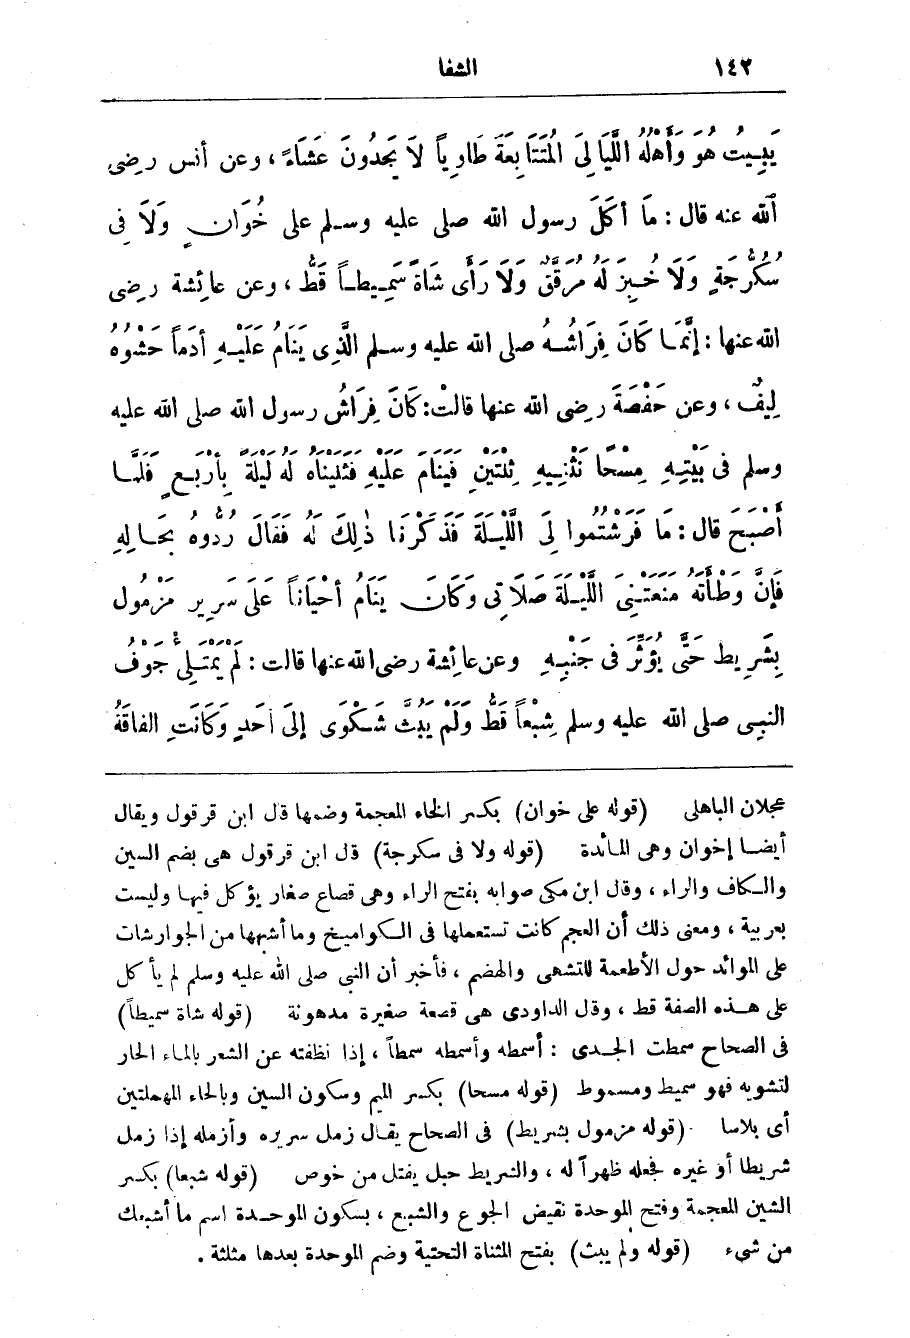 ١٤٢ الشفا
يَبِيتُ هُوَ وَأَهْلُهُ اللَّيَالِىَ الْمُتَتَابِعَةَ طَاوِياً لاَ يَجِدُونَ عَشَاءً ، وعن أنس رضى
الله عنه قال : مَا أكَلَ رسول الله صلى عليه وسلم على خُوَانٍ وَلاَ فِى
سُكُرُّجَةٍ وَلَا خُبِزَ لَهُ مُرَقَّقٌ وَلَا رَأَى شَاةً سَمِيطاً قَطُّ ، وعن عائشة رضى
الله عنها : إنَّمَا كَانَ فِرَاشُهُ صلى الله عليه وسلم الَّذِى يَنَامُ عَلَيْهِ أدَماً حَشْوُهُ
لِيفٌ ، وعن حَفْصَةَ رضى الله عنها قالتْ : كَانَ فِرَاشُ رسول الله صلى الله عليه
وسلم فى بَيْتِهِ مِسْحًا نَثْنِيهِ ثِنْتَيْنِ فَيَنَامُ عَلَيْهِ فَثَنَيْنَاهُ لَهُ لَيْلَةً بِأَرْبَعٍ فَلَمَّا
أَصْبَحَ قال : مَا فَرَشْتُمُوا لِىَ اللَّيْلَةَ فَذَكَرْنَا ذٰلِكَ لَهُ فَقَالَ رُدُّوهُ بِحَالِهِ
فَإِنَّ وَطْأَتَهُ مَنَعَتْنِىَ اللَّيْلَةَ صَلَاتِى وَكَانَ يَنَامُ أحْيَاناً عَلَى سَرِيرٍ مَزْمُولٍ
بِشَرِيطٍ حَتَّى يُؤَثِّرَ فى جَنْبِهِ وعن عائشة رضى الله عنها قالت : لَمْ يَمْتَلِئْ جَوْفُ
النبى صلى الله عليه وسلم شِبْعاً قَطُّ وَلَمْ يَبُثَّ شَكْوَى إلَى أحَدٍ وَكَانَتِ الفاقَةُ
عجلان الباهلى (قوله على خوان) بكسر الخاء المعجمة وضمها قال ابن قرقول ويقال
أيضا إخوان وهى المائدة (قوله ولا فى سكرجة) قال ابن قرقول هى بضم السين
والكاف والراء ، وقال ابن مكى صوابه بفتح الراء وهى قصاع صغار يؤكل فيها وليست
بعربية ، ومعنى ذلك أن العجم كانت تستعملها فى الكواميخ وما أشبهها من الجوارشات
على الموائد حول الأطعمة للتشهى والهضم ، فأخبر أن النبى صلى الله عليه وسلم لم يأكل
على هذه الصفة قط ، وقال الداودى هى قصعة صغيرة مدهونة (قوله شاة سميطاً)
فى الصحاح سمطت الجدى : أسمطه وأسمطه سمطاً ، إذا نظفته عن الشعر بالماء الحار
لتشويه فهو سميط ومسموط (قوله مسحا) بكسر الميم وسكون السين وبالحاء المهملتين
أى بلاسا (قوله مزمول بشريط) فى الصحاح يقال زمل سريره وأزمله إذا زمل
شريطا أو غيره فجعله ظهراً له ، والشريط حبل يفتل من خوص (قوله شبعا) بكسر
الشين المعجمة وفتح الموحدة نقيض الجوع والشبع ، بسكون الموحدة اسم ما أشبعك
من شىء (قوله ولم يبث) بفتح المثناة التحتية وضم الموحدة بعدها مثلثة .